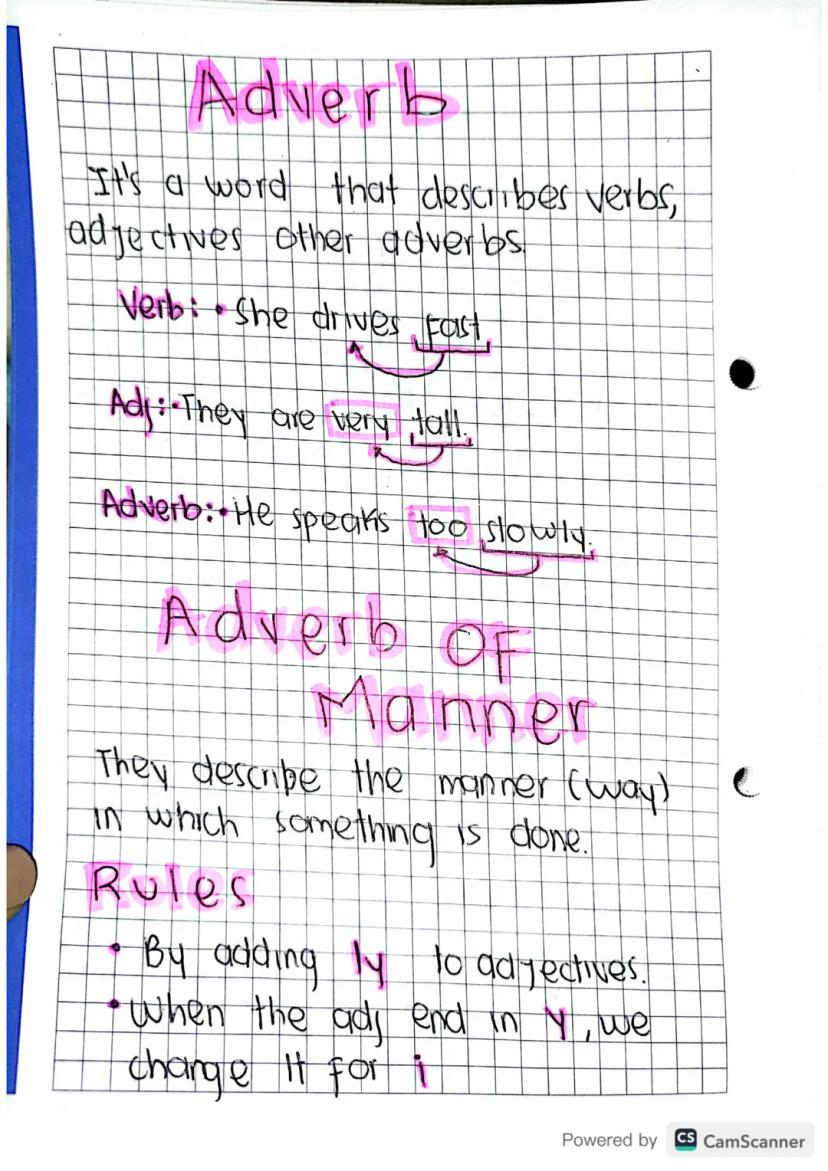 Adverb
It's a word that describes verbs,
adjectives other adverbs.
Verb: • She drives fast.
Adj: • They are very tall.
Adverb: • He speaks too slowly.
Adverb OF
Manner
They describe the manner (way)
in which something is done.
Rules
• By adding ly to adyectives.
• When the adj end in y, we
change it for i
Powered by CS CamScanner